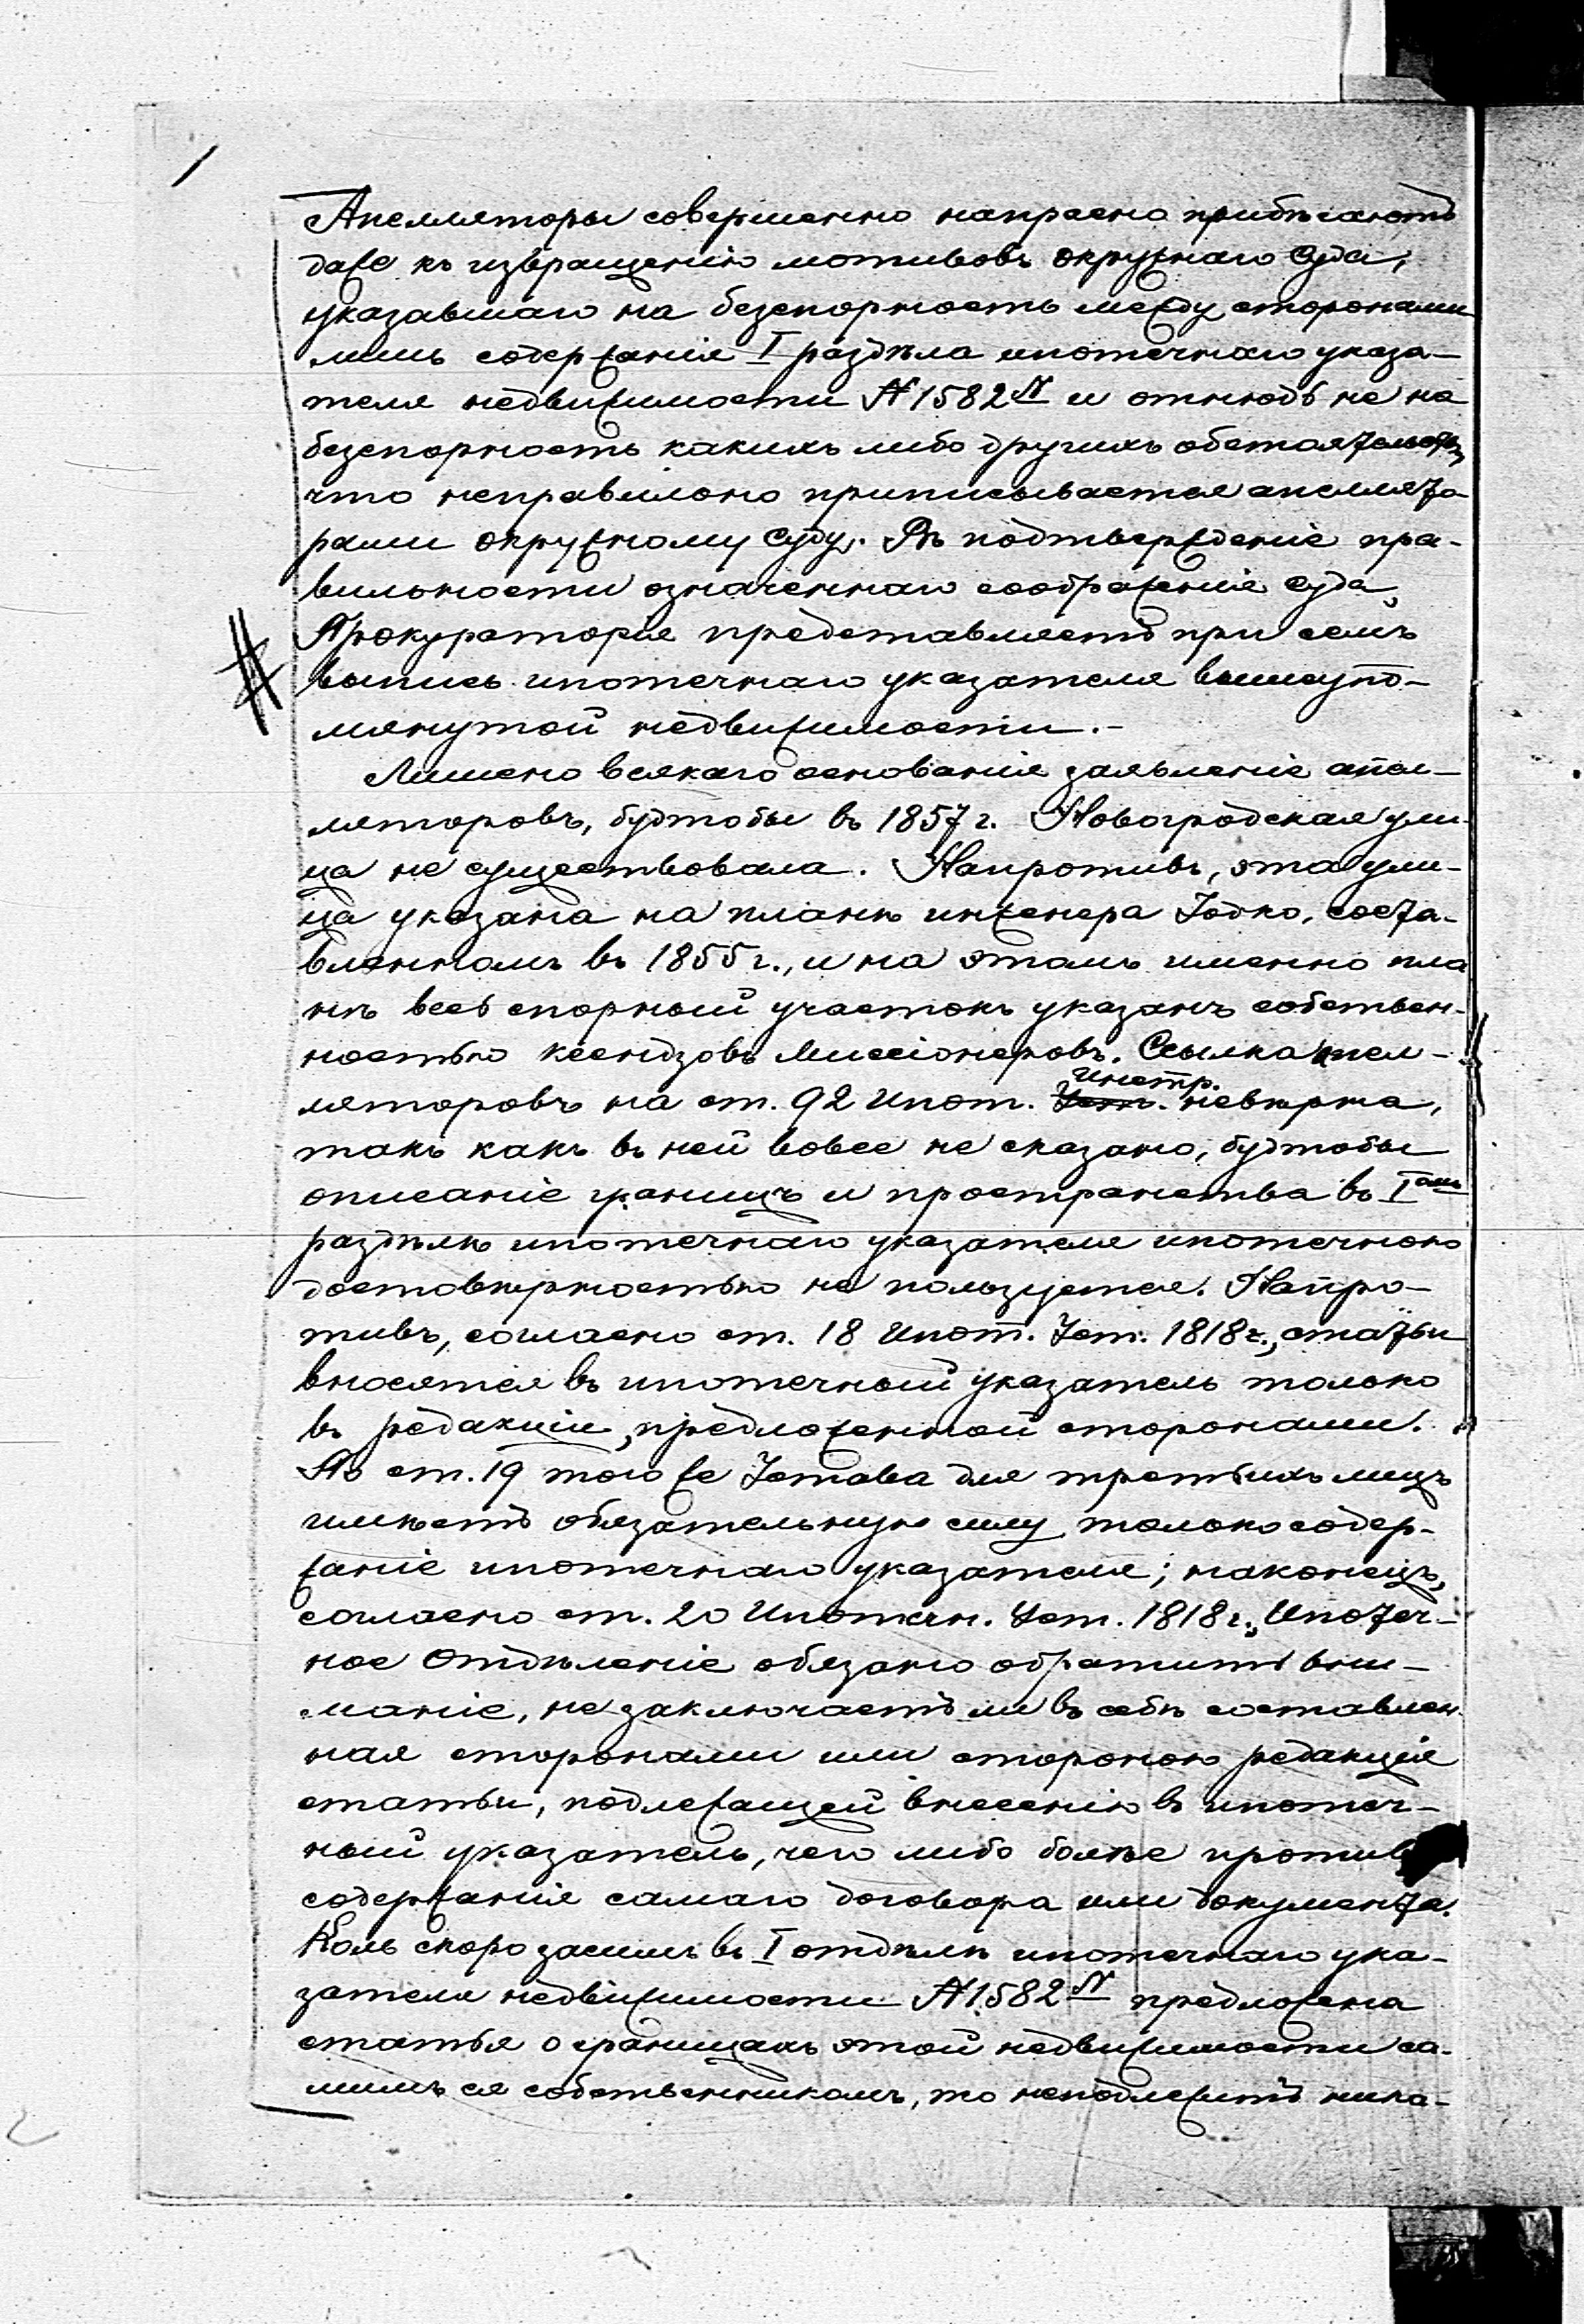 Апелляторы совершенно напрасно прибѣгаютъ
даже къ извращенію мотивовъ Окружнаго Суда,
указавшаго на безспорность между сторонами
лишь содержанія I раздѣла ипотечнаго указа-
теля недвижимости №1582 N и отнюдь не на
безспорность какихъ либо другихъ обстоятельствъ,
что неправильно приписывается апеллято-
рами Окружному Суду. Въ подтвержденіе пра-
вильности означеннаго соображенія Суда,
Прокураторія представляетъ при семъ
выпись ипотечнаго указателя вышеупо-
мянутой недвижимости.-
Лишено всякаго основанія заявленіе апел-
ляторовъ, будтобы въ 1857 г. Новогродская ули-
ца не существовала. Напротивъ, эта ули-
ца указана на планѣ инженера Іодко, соста-
вленномъ въ 1855 г., и на этомъ именно пла
нѣ весь спорный участокъ указанъ собствен-
ностью ксендзовъ Миссіонеровъ. Ссылка апел-
Инстр.
ляторовъ на ст. 92 Ипот. Уст. невѣрна,
такъ какъ въ ней вовсе не сказано, будтобы
описаніе границъ и пространства въ I омъ
раздѣлѣ ипотечнаго указателя ипотечною
достовѣрностью не пользуется. Напро-
тивъ, согласно ст. 18 Ипот. Уст. 1818 г., статьи
вносятся въ ипотечный указатель только
въ редакціи, предложенной сторонами.
По ст. 19 того же Устава для третьихъ лицъ
имѣетъ обязательную силу только содер-
жаніе ипотечнаго указателя; наконецъ,
согласно ст. 20 Ипотечн. Уст. 1818 г., Ипотеч-
ное Отдѣленіе обязано обратить вни-
маніе, не заключаетъ ли въ себѣ составлен
ная сторонами или стороною редакція
статьи, подлежащей внесенію въ ипотеч-
ный указатель, чего либо болѣе против
содержанія самаго договора или документа.
Коль скоро засимъ въ I отдѣлѣ ипотечнаго ука-
зателя недвижимости №1582 N предложена
статья о границахъ этой недвижимости са-
мимъ ея собственникомъ, то неподлежитъ ника-